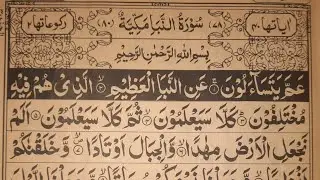 اٰيَاتُهَا ٤٠ (٧٨) سُوْرَةُ النَّبَاِ مَكِّيَّةٌ (٨٠) رُكُوْعَاتُهَا ٢
بِسْمِ اللّٰهِ الرَّحْمٰنِ الرَّحِيْمِ
عَمَّ يَتَسَآءَلُوْنَ ۞ عَنِ النَّبَاِ الْعَظِيْمِ ۞ الَّذِيْ هُمْ فِيْهِ
مُخْتَلِفُوْنَ ۞ كَلَّا سَيَعْلَمُوْنَ ۞ ثُمَّ كَلَّا سَيَعْلَمُوْنَ ۞ اَلَمْ
نَجْعَلِ الْاَرْضَ مِهٰدًا ۞ وَّالْجِبَالَ اَوْتَادًا ۞ وَّخَلَقْنٰكُمْ